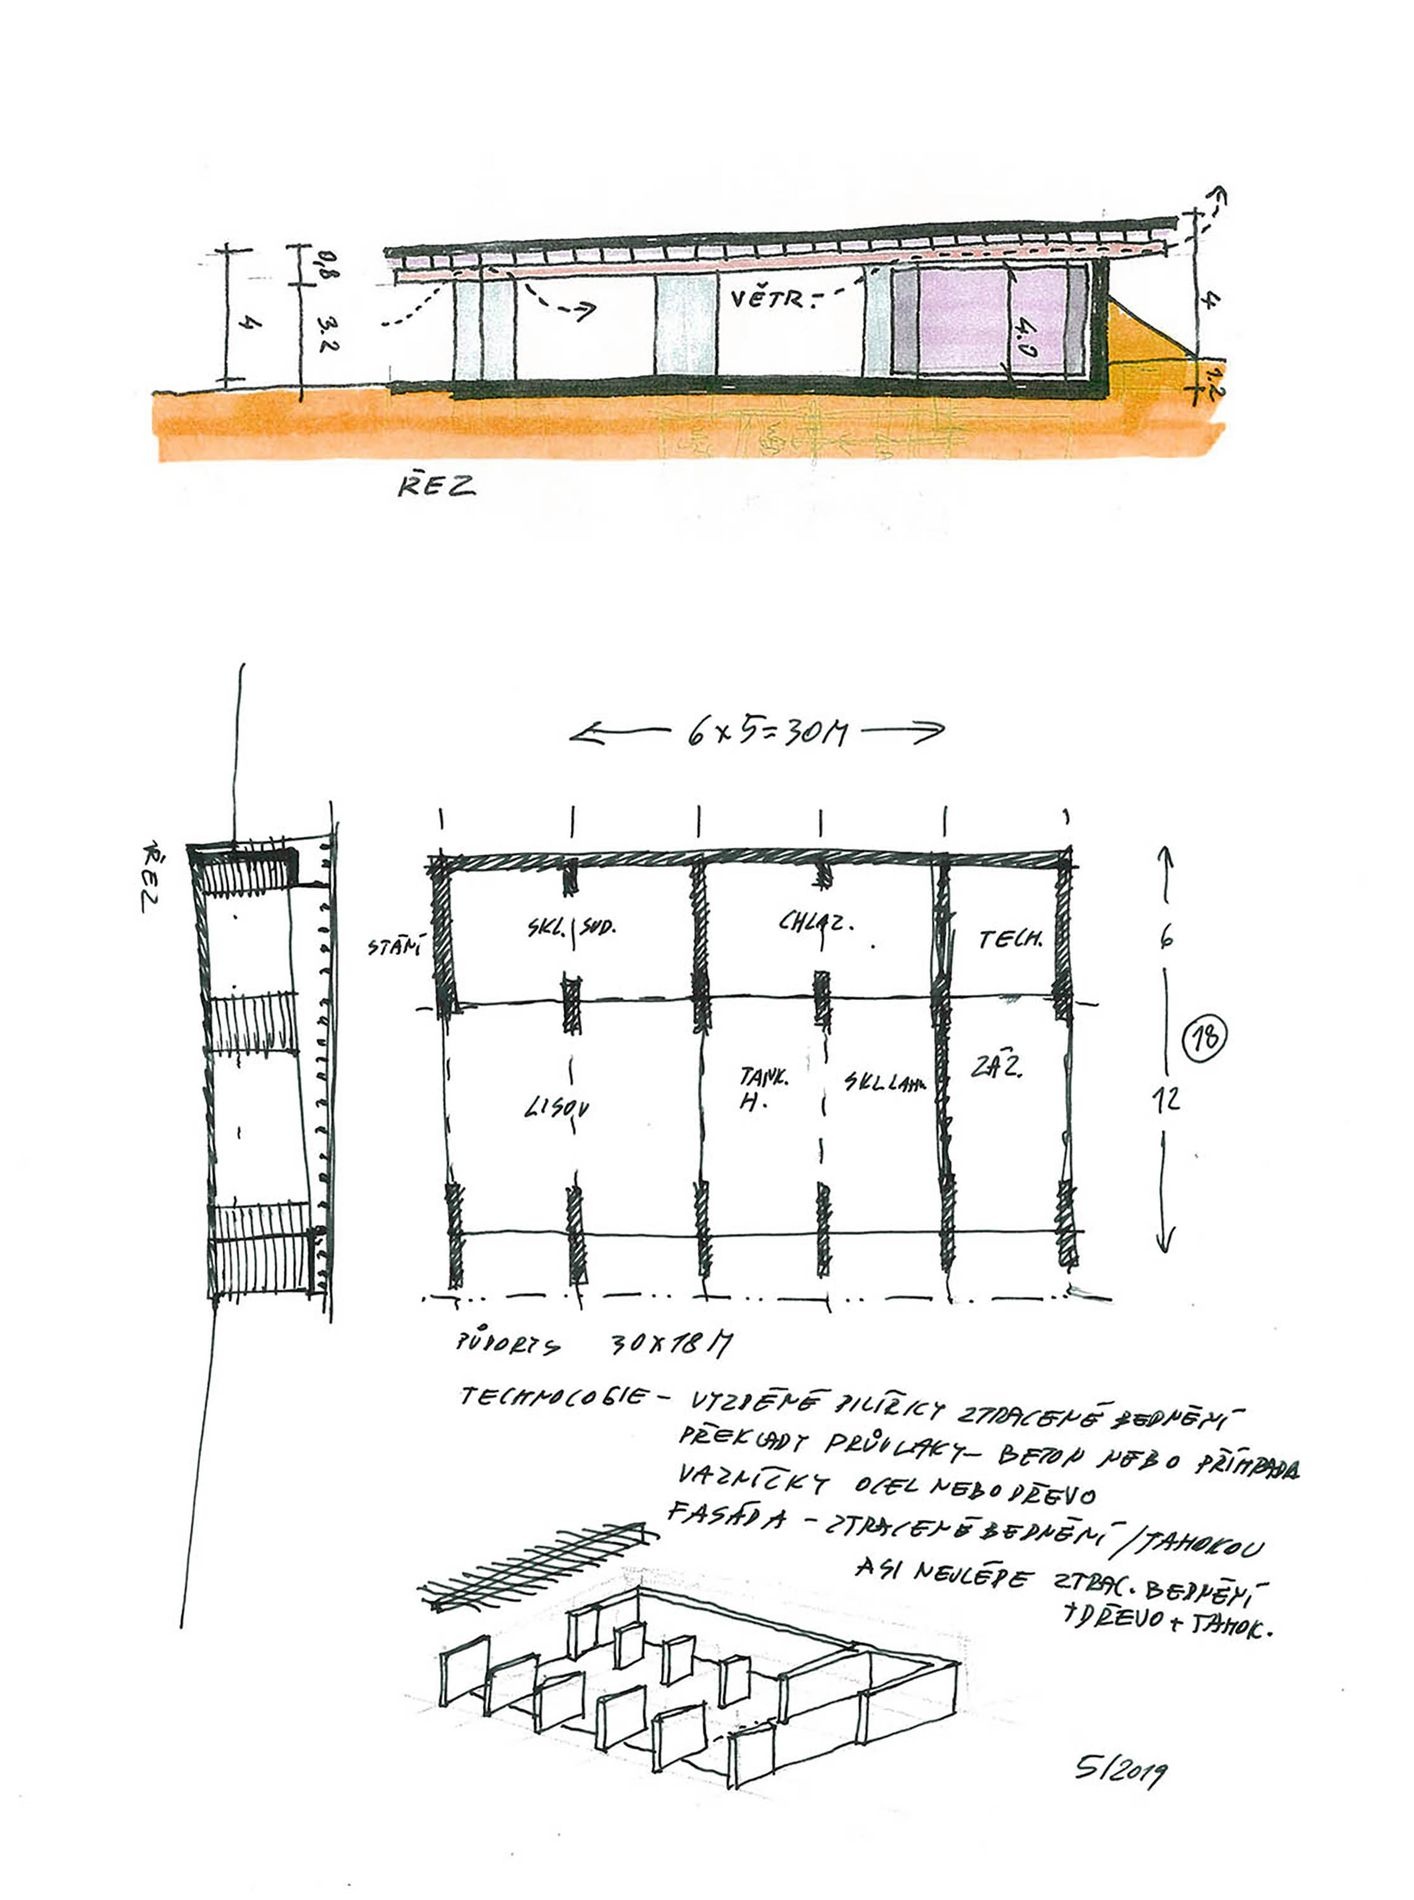 0,8
4
3.2
VĚTR.
4.0
4
1.2
ŘEZ
6x5=30M
ŘEZ
STÁNÍ
SKL. SUD.
CHLAZ.
TECH.
6
18
LISOV
TANK.
H.
SKL LAHV.
ZÁZ.
12
PŮDORYS 30x18M
TECHNOLOGIE - VYZDĚNÉ PILÍŘKY ZTRACENÉ BEDNĚNÍ
PŘEKLADY PRŮVLAKY - BETON NEBO PŘÍHRADA
VAZNÍČKY OCEL NEBO DŘEVO
FASÁDA - ZTRACENÉ BEDNĚNÍ / TAHOKOV
ASI NEJLÉPE ZTRAC. BEDNĚNÍ
+ DŘEVO + TAHOK.
5/2019